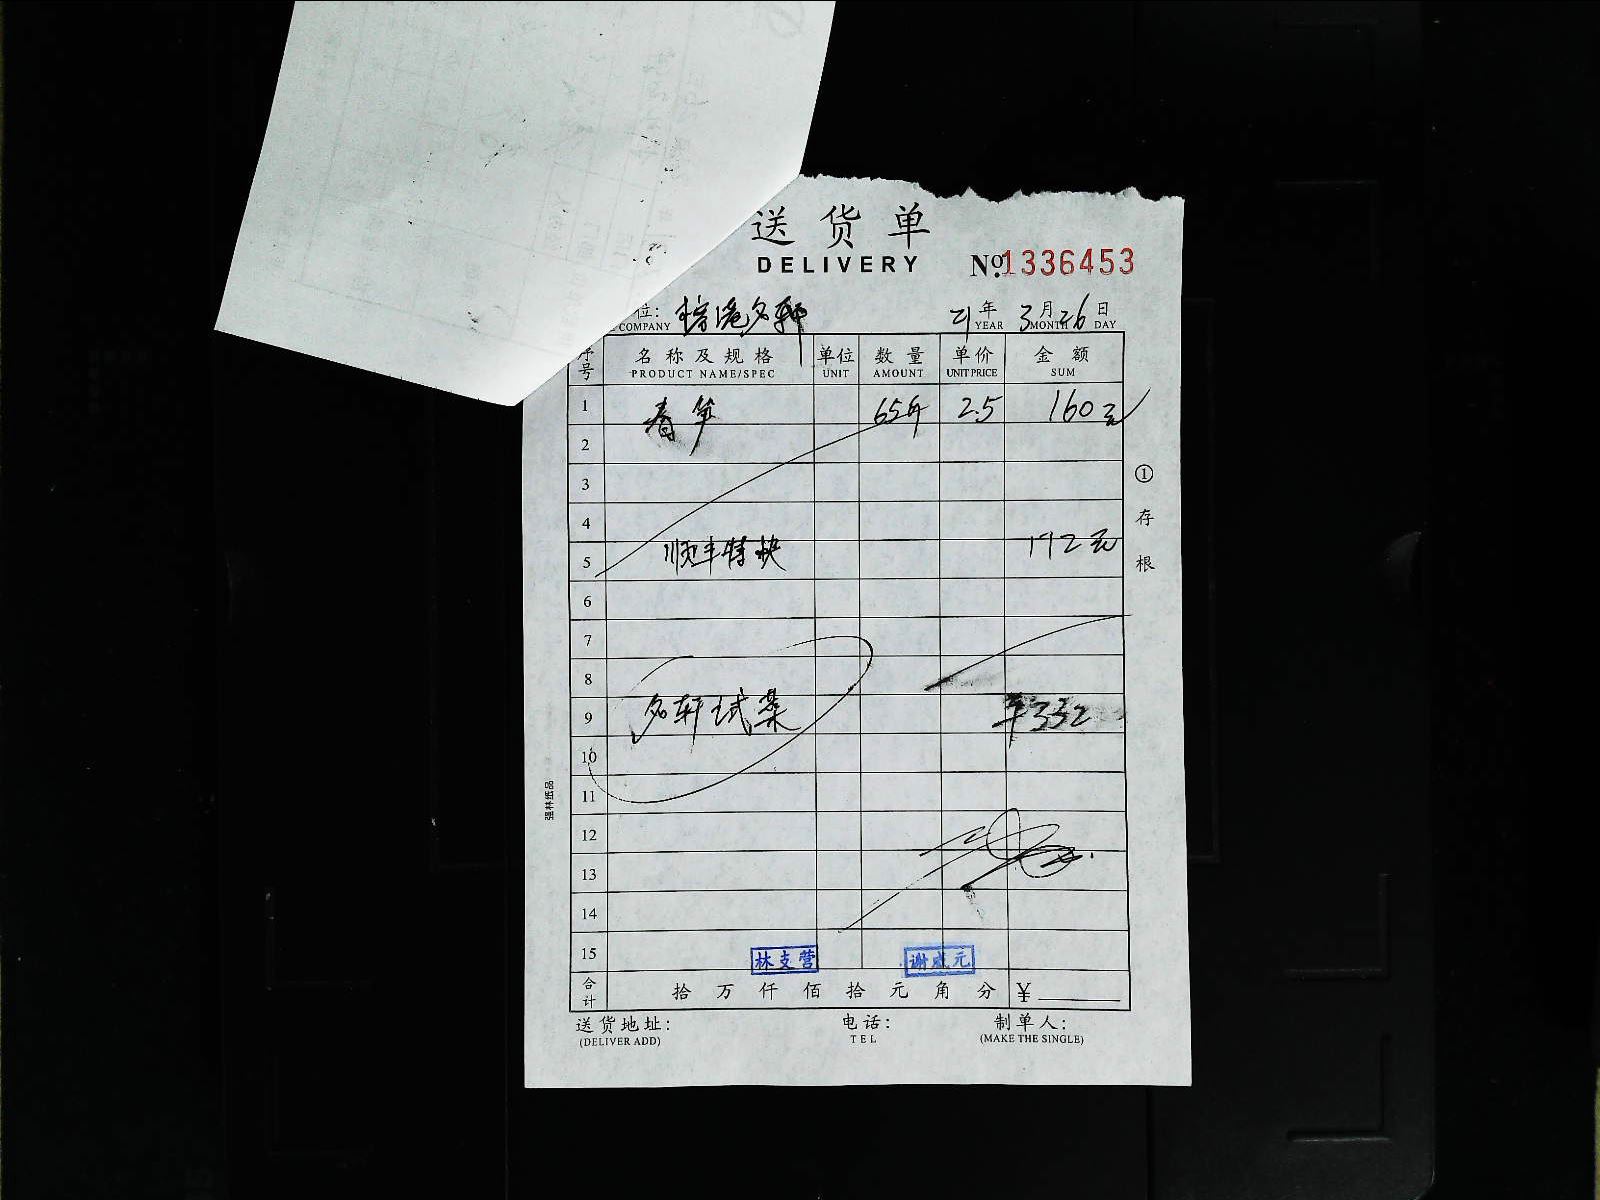 送货单
DELIVERY
No. 1336453
位: 名轩
COMPANY
21 年 3 月 26 日
YEAR MONTH DAY
序号 名称及规格 单位 数量 单价 金额
PRODUCT NAME/SPEC UNIT AMOUNT UNIT PRICE SUM
1 春笋 65斤 2.5 160元
2
3
4
5 顺丰特快 172元
6
7
8
9 名轩试菜 ¥332
10
11
12
13
14
15 林支营 谢成元
合计 拾 万 仟 佰 拾 元 角 分 ¥
送货地址: 电话: 制单人:
(DELIVER ADD) TEL (MAKE THE SINGLE)
① 存根
强林纸品